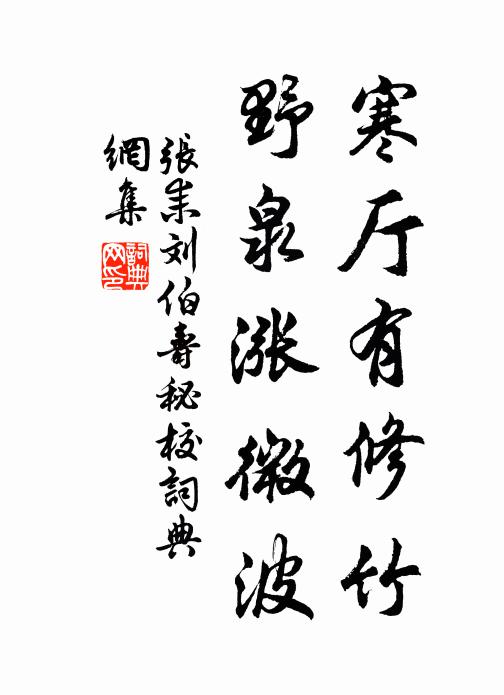 寒厅有修竹
野泉漲微波
張耒刘伯壽秘校詞典
網集
詞典網印